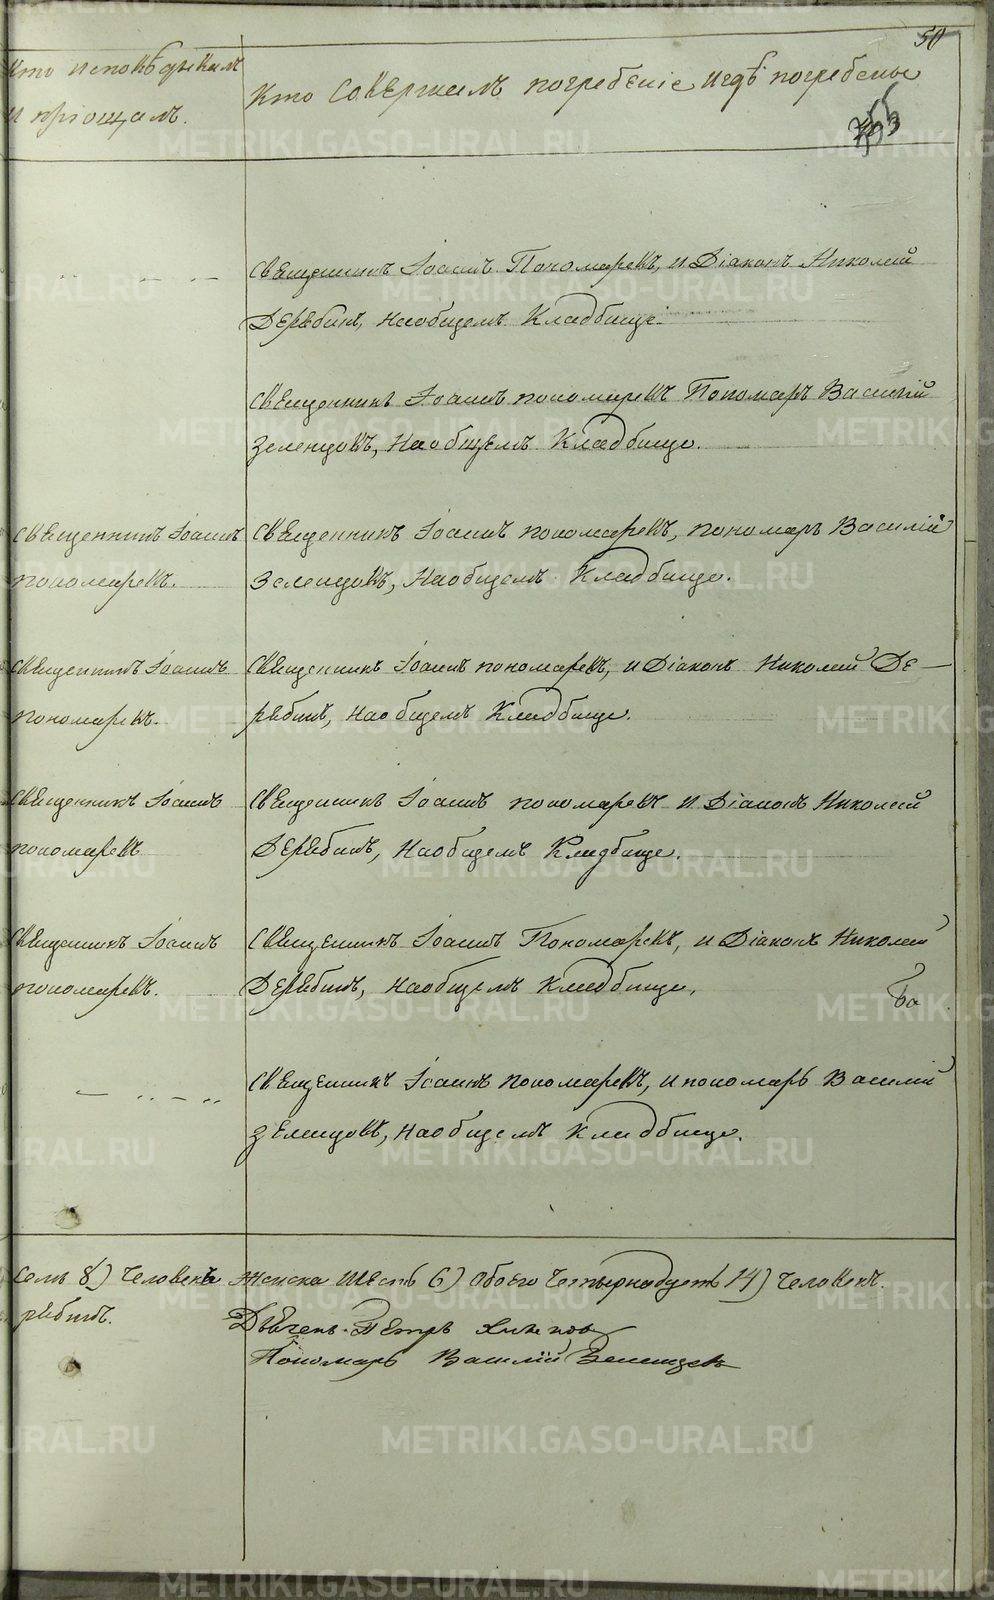 50
Кто исповѣдывалъ
и пріощалъ.
Кто совершалъ погребеніе и гдѣ погребены
Священникъ Іоаннъ Пономаревъ, и Діаконъ Николай
Дерябинъ, на общемъ Кладбище.
Священникъ Іоаннъ пономаревъ Пономарь Василий
Зеленцовъ, На общемъ Кладбище.
Священникъ Іоаннъ
пономаревъ.
Священникъ Іоаннъ пономаревъ, пономарь Василій
Зеленцовъ, На общемъ Кладбище.
Священникъ Іоаннъ
пономаревъ.
Священникъ Іоаннъ пономаревъ, и Діаконъ Николай Де-
рябинъ, На общемъ Кладбище.
Священникъ Іоаннъ
пономаревъ
Священникъ Іоаннъ пономаревъ и Діаконъ Николай
Дерябинъ, На общемъ Кладбище.
Священникъ Іоаннъ
пономаревъ.
Священникъ Іоаннъ Пономаревъ, и Діаконъ Николай
Дерябинъ, На общемъ Кладбище,
Священникъ Іоаннъ пономаревъ, и пономарь Василий
Зеленцовъ, На общемъ Кладбище.
семь 8) Человекъ женска Шесть 6) Обоего Четырнадцеть 14) Человекъ.
рябинъ.
Дьячекъ Петръ
Пономарь Василій Зеленцовъ
METRIKI.GASO-URAL.RU